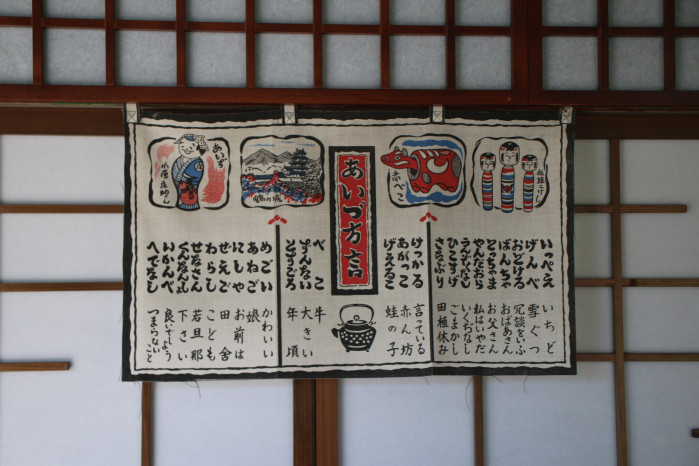 会津こけし
いっぺえ いちど
げんべ 雪ぐつ
おどける 冗談をいふ
ばんちゃ おばあさん
とっちゃま お父さん
やんだおら 私はいやだ
いくぢなし
ひこすげ ごまかし
さなぶり 田植休み
赤べこ
けっかる 言っている
あかっこ 赤ん坊
げえるご 蛙の子
あいづ方言
べこ 牛
ずんない 大きい
とすごろ 年頃
めごい かわいい
あねご 娘
にしゃ お前は
ぜえご 田舎
わらし こども
せなさん 若旦那
くんなんしょ 下さい
いかんべ 良いでしょう
へでなし つまらないこと
あいづ
小原庄助さん